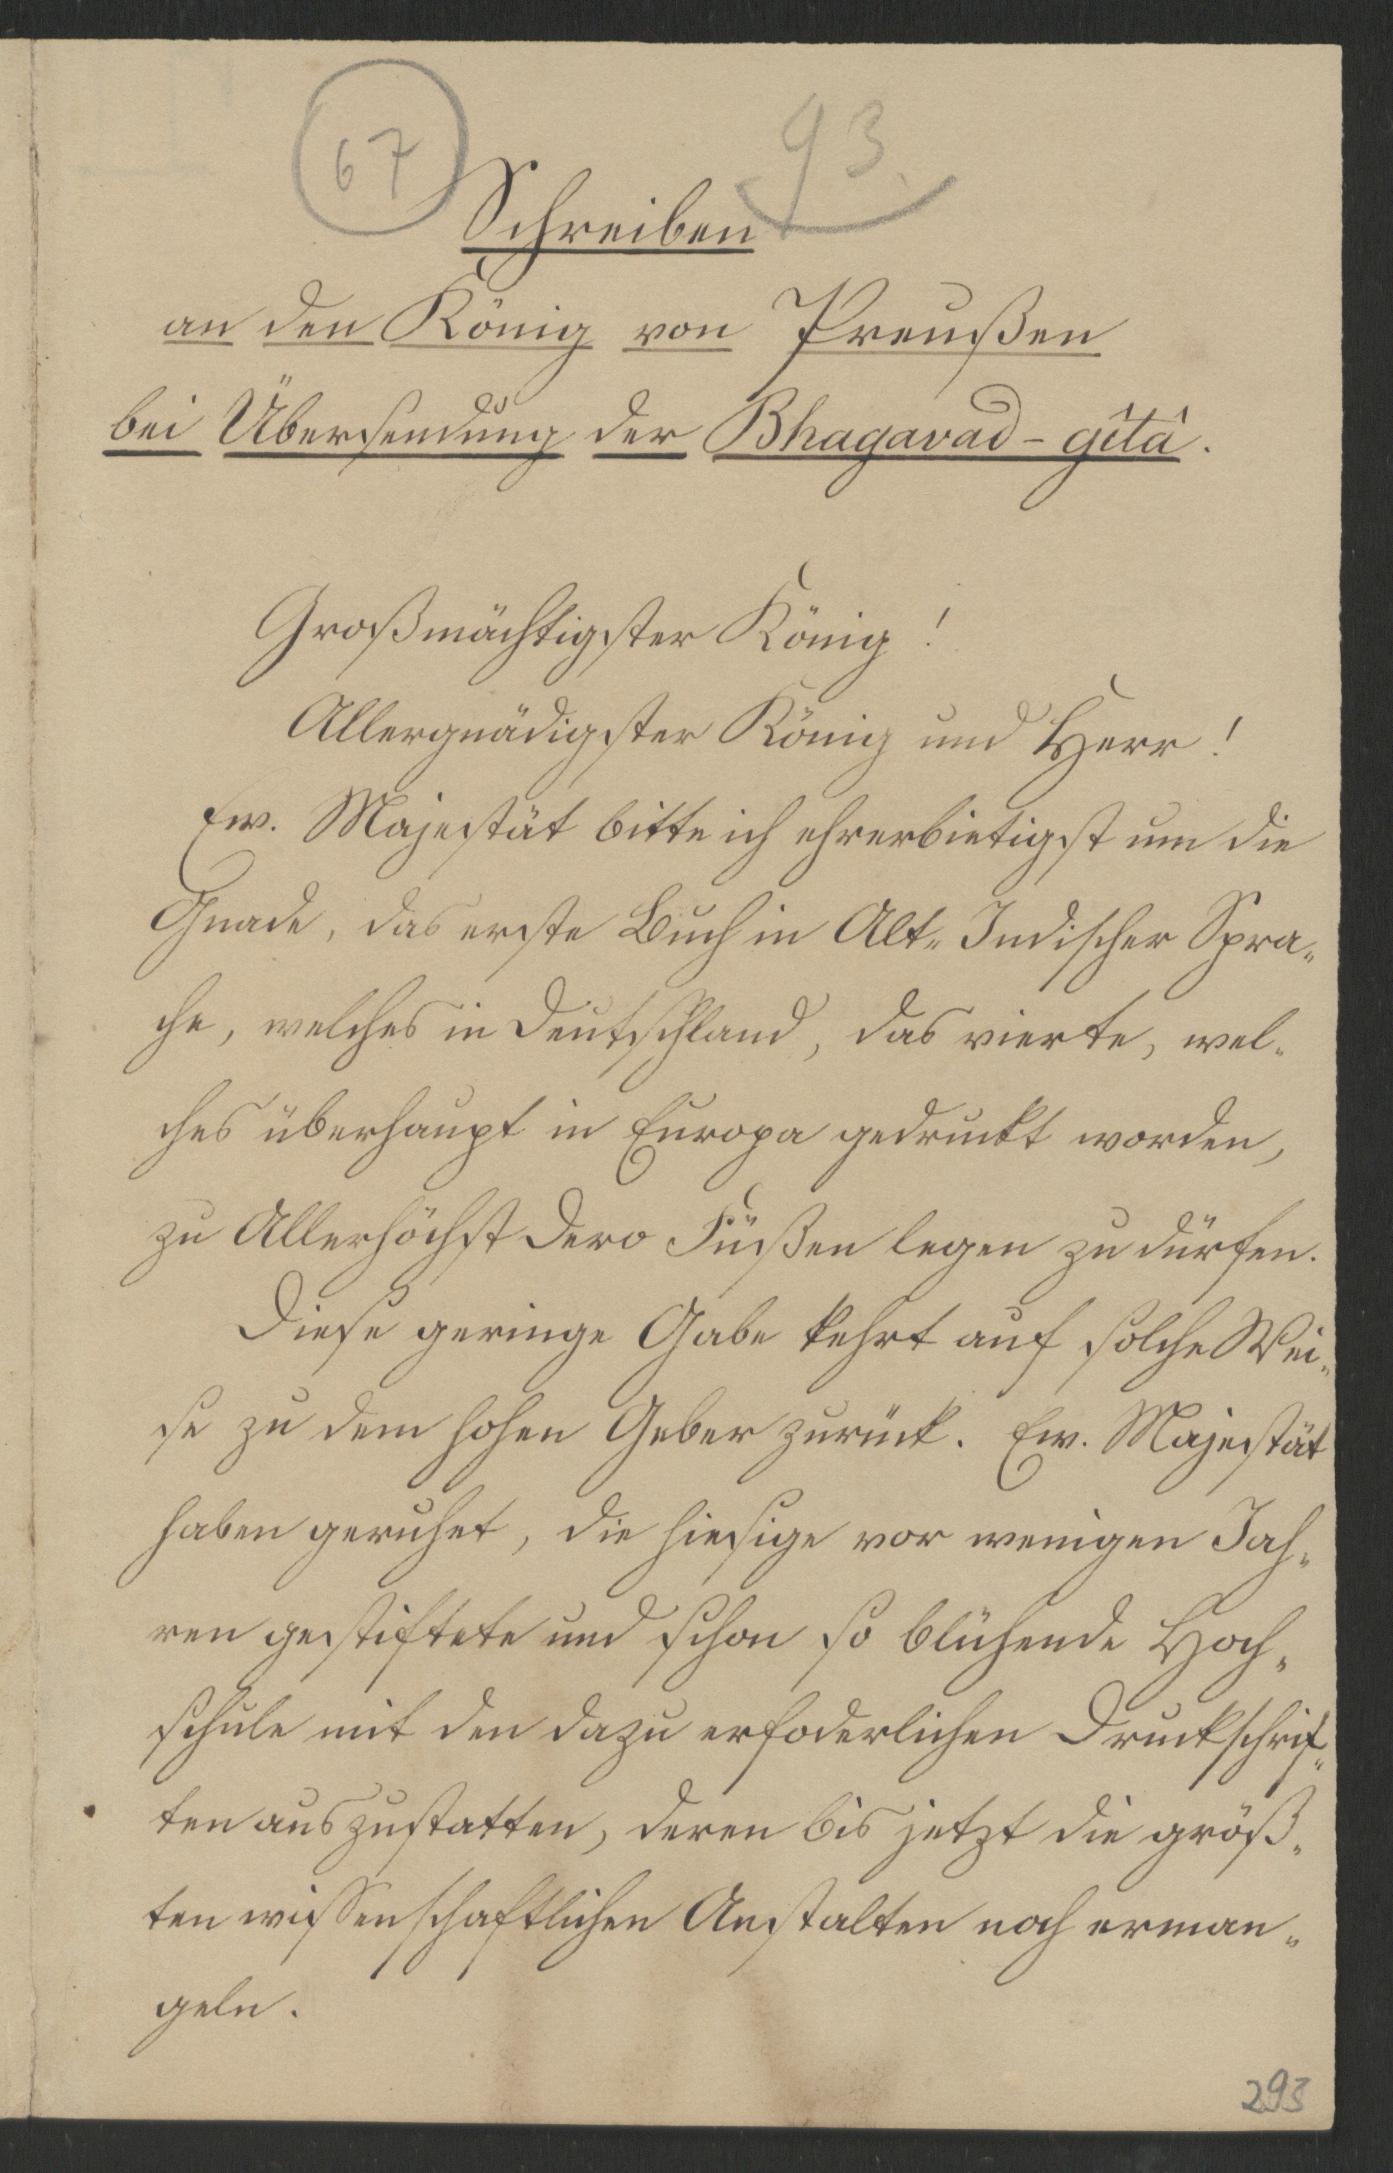 67
93.
Schreiben
an den König von Preußen
bei Übersendung der Bhagavad-gîtâ.
Großmächtigster König!
Allergnädigster König und Herr!
Ew. Majestät bitte ich ehrerbietigst um die
Gnade, das erste Buch in Alt-Indischer Spra-
che, welches in Deutschland, das vierte, wel-
ches überhaupt in Europa gedruckt worden,
zu Allerhöchst Dero Füßen legen zu dürfen.
Diese geringe Gabe kehrt auf solche Wei-
se zu dem hohen Geber zurück. Ew. Majestät
haben geruhet, die hiesige vor wenigen Jah-
ren gestiftete und schon so blühende Hoch-
schule mit den dazu erfoderlichen Druckschrif-
ten auszustatten, deren bis jetzt die größ-
ten wissenschaftlichen Anstalten noch erman-
geln.
293